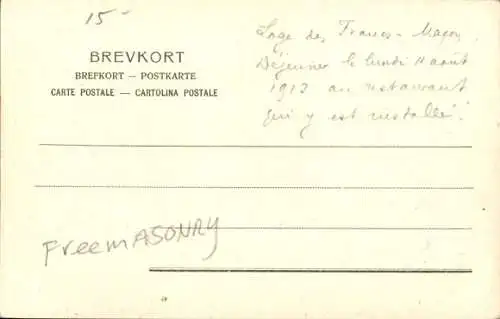 15-
BREVKORT
BREFKORT — POSTKARTE
CARTE POSTALE — CARTOLINA POSTALE
Loge des Francs-Maçons.
Déjeuner le lundi 11 août
1913 au restaurant
qui y est installé.
FreeMASONRY